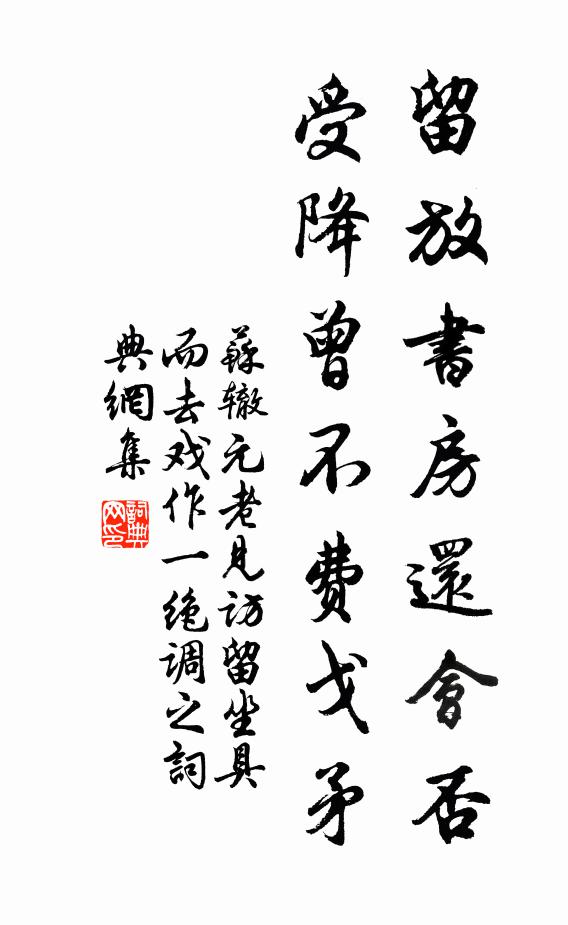 留放書房還會否
受降曾不費戈矛
蘇辙元老見訪留坐具
而去戏作一绝调之詞
典網集
詞典
网印